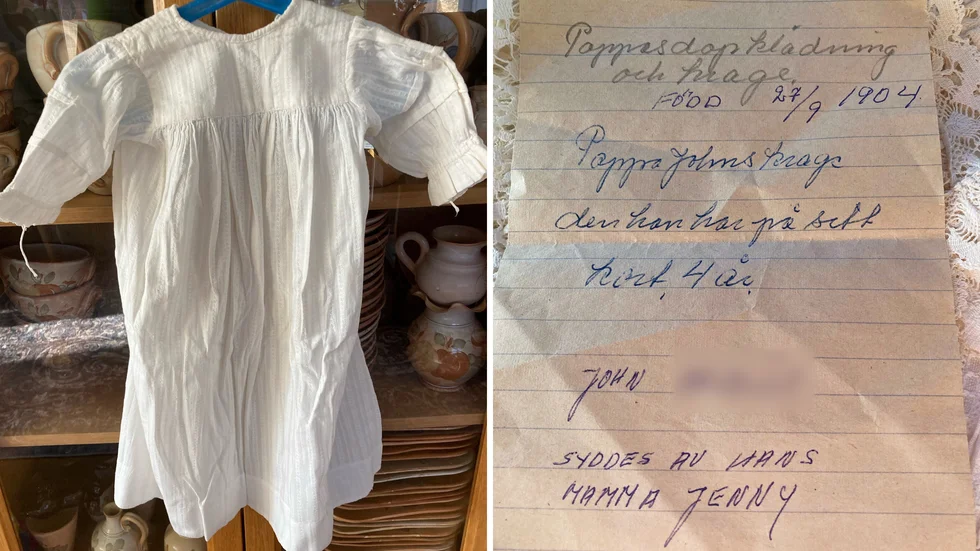 Pappas dop klädning
och krage.
FÖDD 27/9 1904.
Pappa Johns krage
den han har på sitt
kort, 4 år.
JOHN
SYDDES AV HANS
MAMMA JENNY